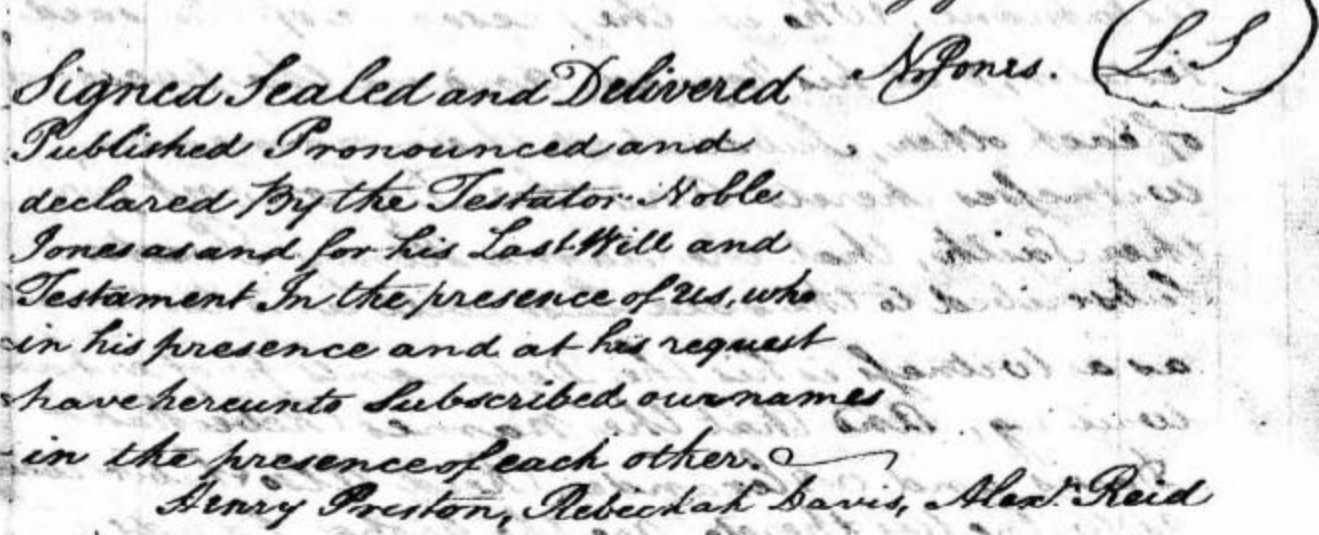 N. Jones. L. S
Signed Sealed and Delivered
Published Pronounced and
declared By the Testator Noble
Jones as and for his Last Will and
Testament In the presence of us, who
in his presence and at his request
have hereunto Subscribed our names
in the presence of each other.
Henry Preston, Rebeckah Davis, Alexr. Reid